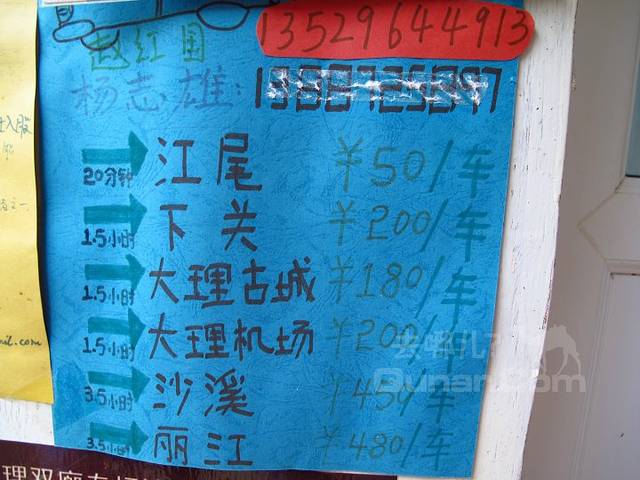 13529644913
赵红国
杨志雄:
20分钟 江尾 ¥50/车
1.5小时 下关 ¥200/车
1.5小时 大理古城 ¥180/车
1.5小时 大理机场 ¥200/车
3.5小时 沙溪 ¥450/车
3.5小时 丽江 ¥480/车
去哪儿
Qunar.Com